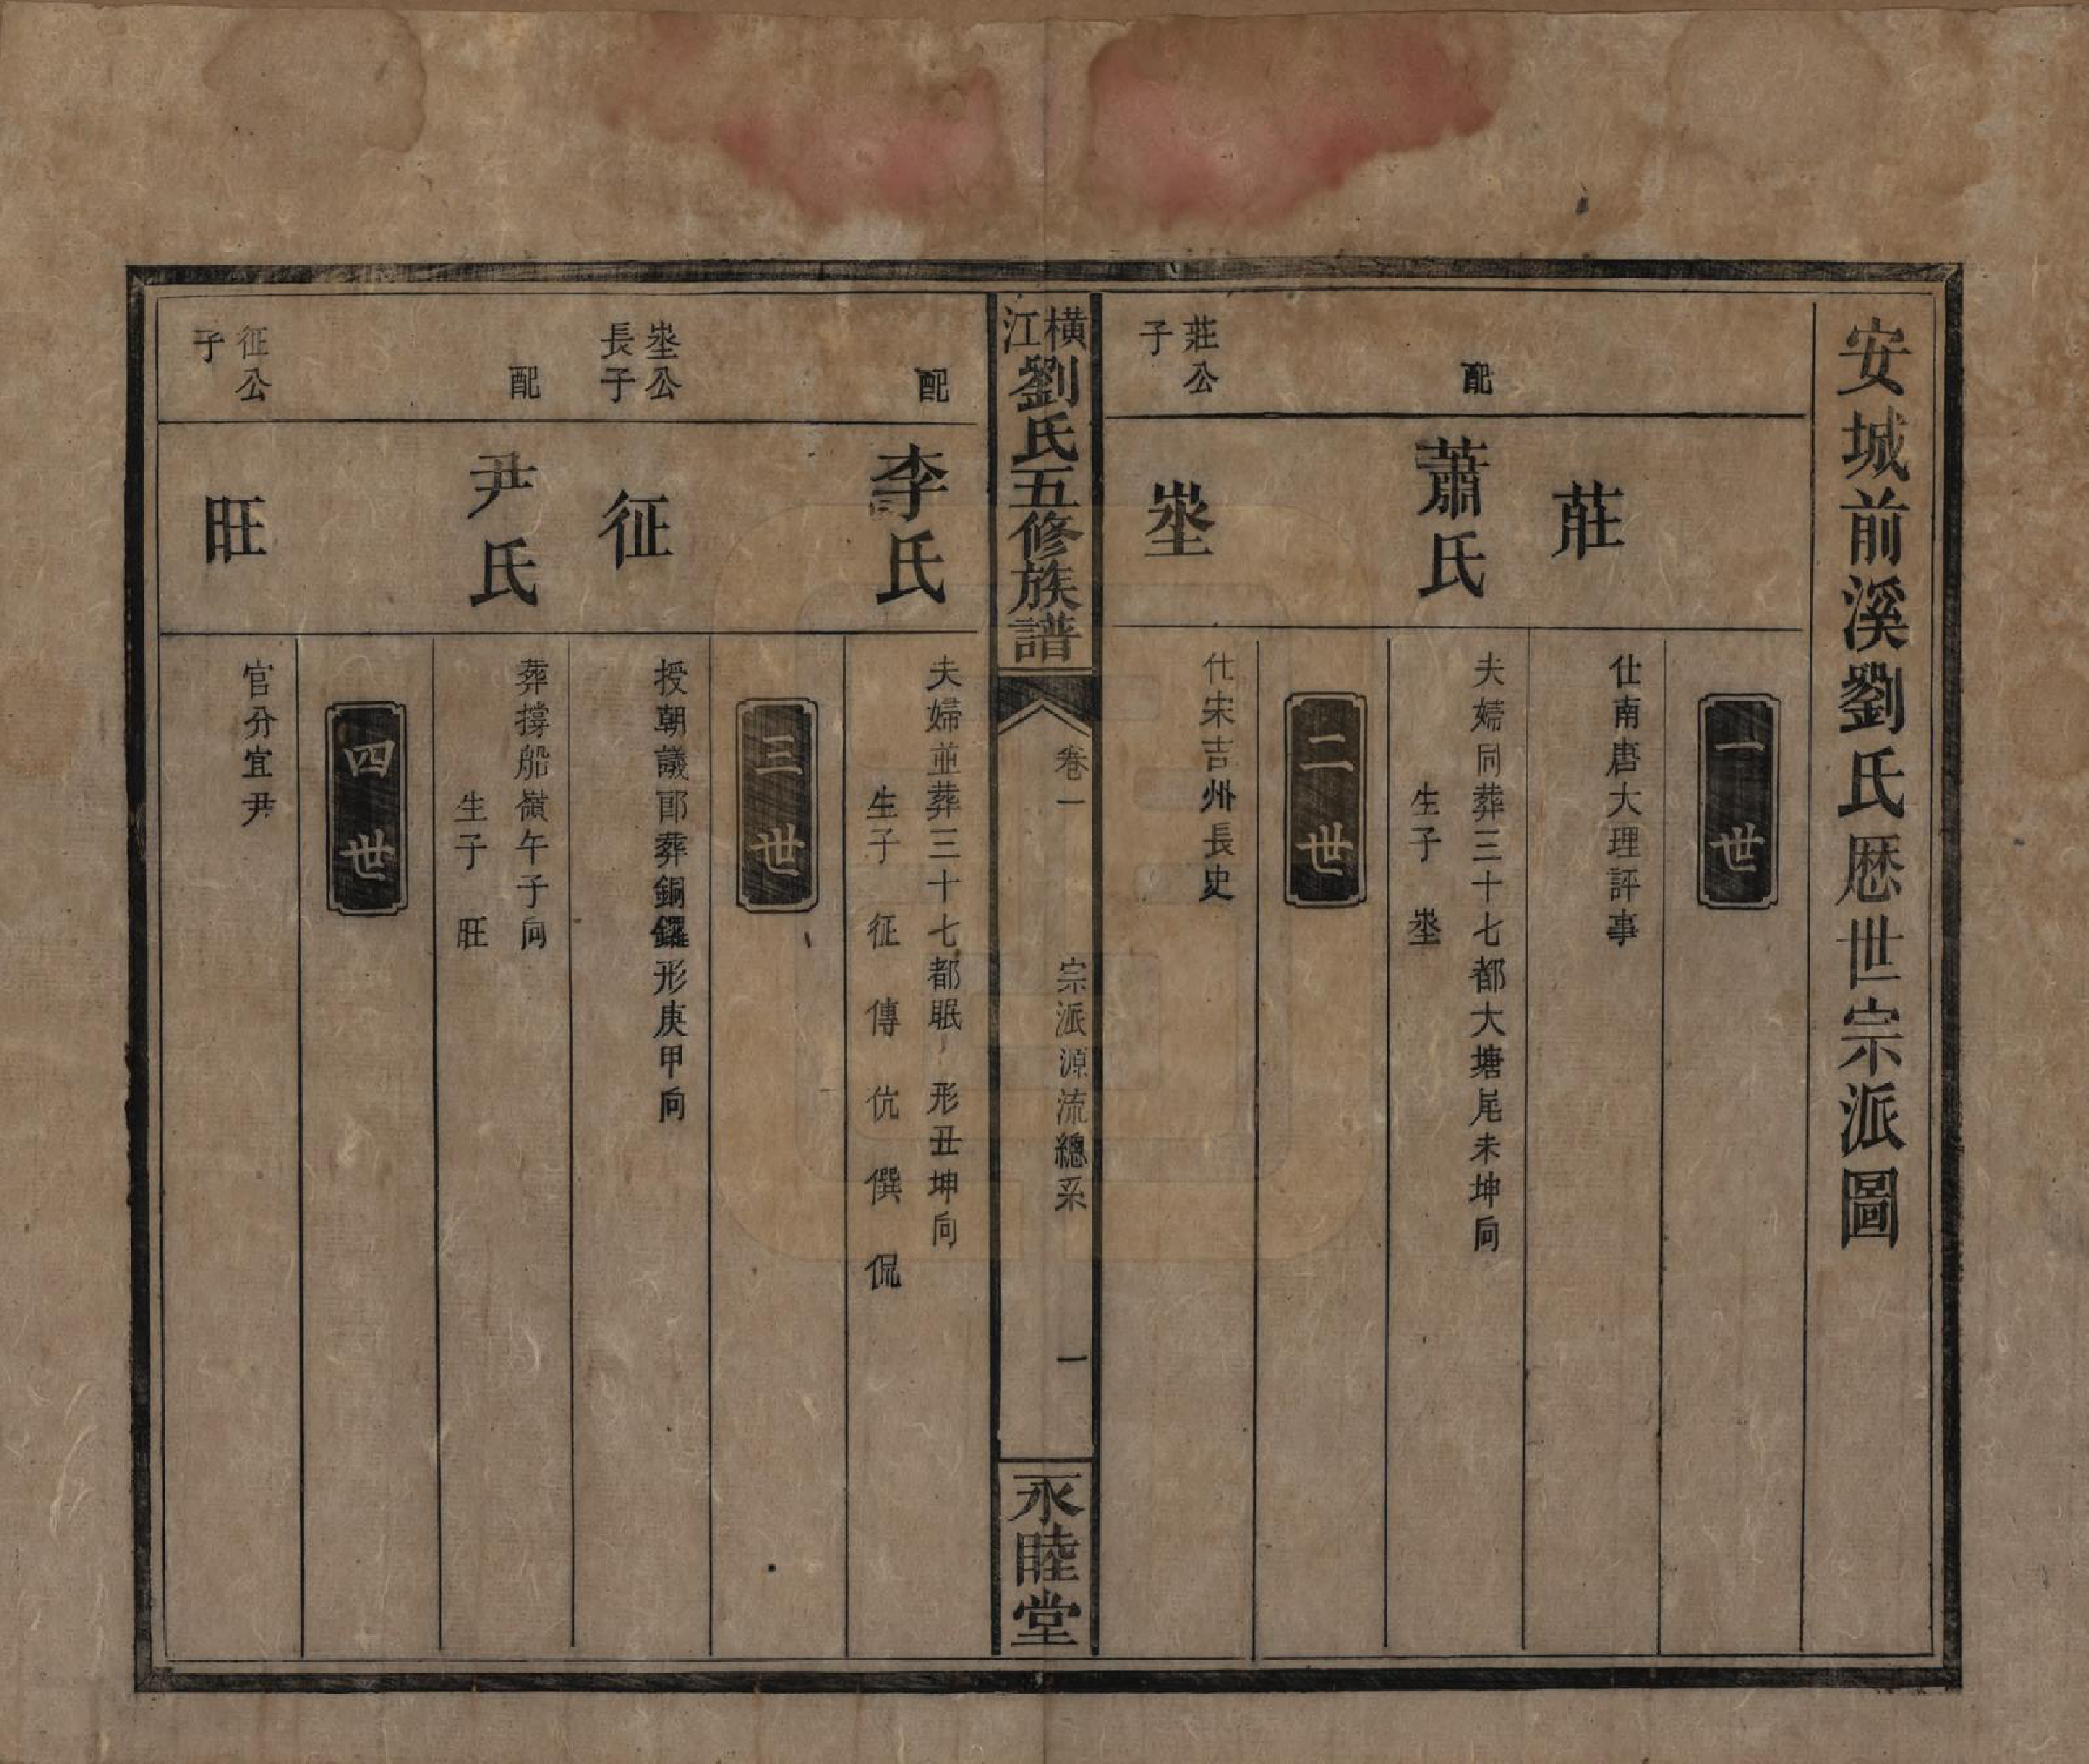 安城前溪劉氏歷世宗派圖
一世
莊
仕南唐大理評事
配
蕭氏
夫婦同葬三十七都大塘尾未坤向
生子 埊
二世
莊公
子
埊
仕宋吉州長史
橫江劉氏五修族譜
卷一
宗派源流總系
一
永睦堂
配
李氏
夫婦並葬三十七都眠 形丑坤向
生子 征 傳 伉 僎 侃
三世
埊公
長子
征
授朝議郎葬銅鑼形庚甲向
配
尹氏
葬撐船嶺午子向
生子 旺
四世
征公
子
旺
官分宜尹